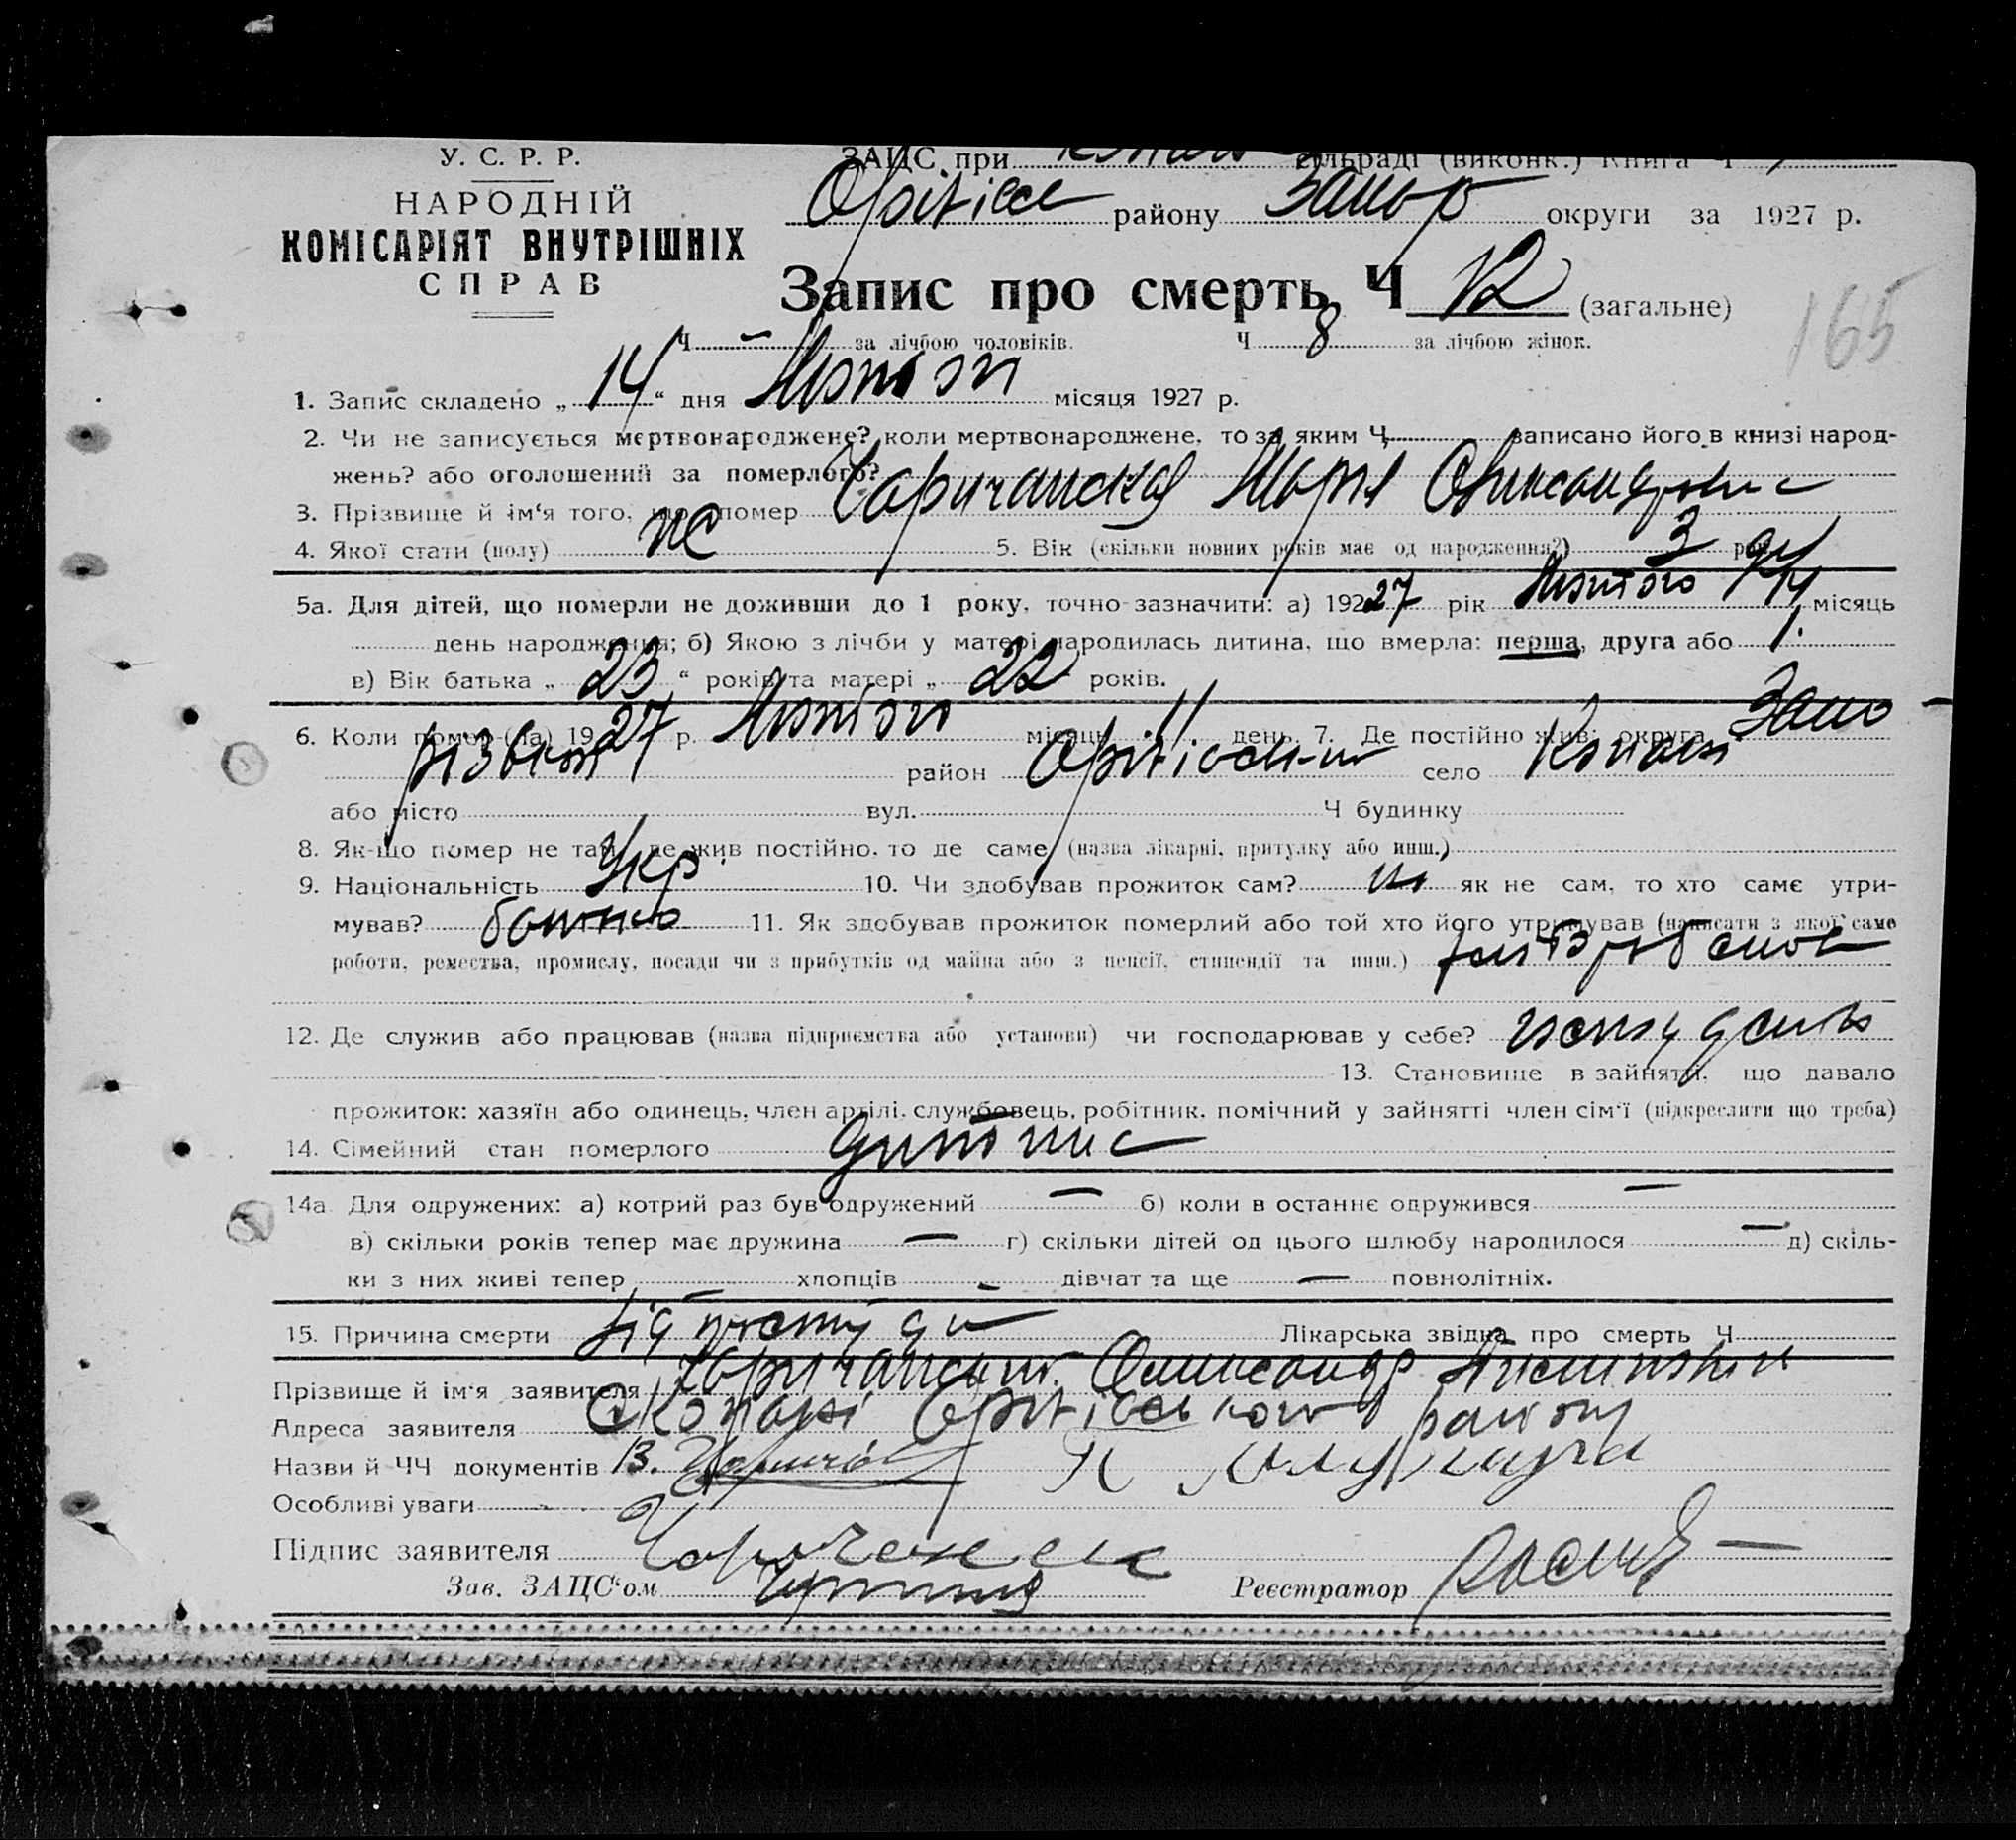 У. С. Р. Р.
НАРОДНІЙ
КОМІСАРІЯТ ВНУТРІШНІХ
СПРАВ
ЗАЦС при сільраді (виконк.) Книга Ч
району Запор округи за 1927 р.
Запис про смерть Ч 12 (загальне)
Ч — за лічбою чоловіків. Ч 8 за лічбою жінок.
165
1. Запис складено „ 14 “ дня Лютого місяця 1927 р.
2. Чи не записується мертвонароджене? коли мертвонароджене, то за яким Ч. записано його в книзі народ-
жень? або оголошений за померлого?
3. Прізвище й ім‘я того, що помер Чаричанская Марія
4. Якої стати (полу) ж 5. Вік (скільки повних років має од народження?) 3 дн
5а. Для дітей, що померли не доживши до 1 року, точно зазначити: а) 1927 рік Лютого місяць
день народження; б) Якою з лічби у матері народилась дитина, що вмерла: перша, друга або 1.
в) Вік батька „ 23 “ років та матері „ 22 років.
6. Коли помер (ла) 1927 р. Лютого місяць 11 день. 7. Де постійно жив: округа Запо
різька район Оріхівський село Копані
або місто вул. Ч будинку
8. Як-що помер не там, де жив постійно, то де саме (назва лікарні, притулку або инш.)
9. Національність Укр 10. Чи здобував прожиток сам? ні як не сам, то хто самє утри-
мував? батько 11. Як здобував прожиток померлий або той хто його утримував (написати з якої саме
роботи, ремества, промислу, посади чи з прибутків од майна або з пенсії, стипендії та инш.) хліборобства
12. Де служив або працював (назва підприємства або установи) чи господарював у себе?
13. Становище в зайнятті, що давало
прожиток: хазяїн або одинець, член артілі, службовець, робітник, помічний у зайнятті член сім‘ї (підкреслити що треба)
14. Сімейний стан померлого дитина
14а. Для одружених: а) котрий раз був одружений — б) коли в останнє одружився —
в) скільки років тепер має дружина — г) скільки дітей од цього шлюбу народилося — д) скіль-
ки з них живі тепер — хлопців - дівчат та ще — повнолітніх.
15. Причина смерти Від простуди Лікарська звідка про смерть Ч
Прізвище й ім‘я заявителя Чаричанський Олександр
Адреса заявителя с Копані Оріхівського району
Назви й ЧЧ документів
Особливі уваги
Підпис заявителя
Зав. ЗАЦС‘ом Реєстратор